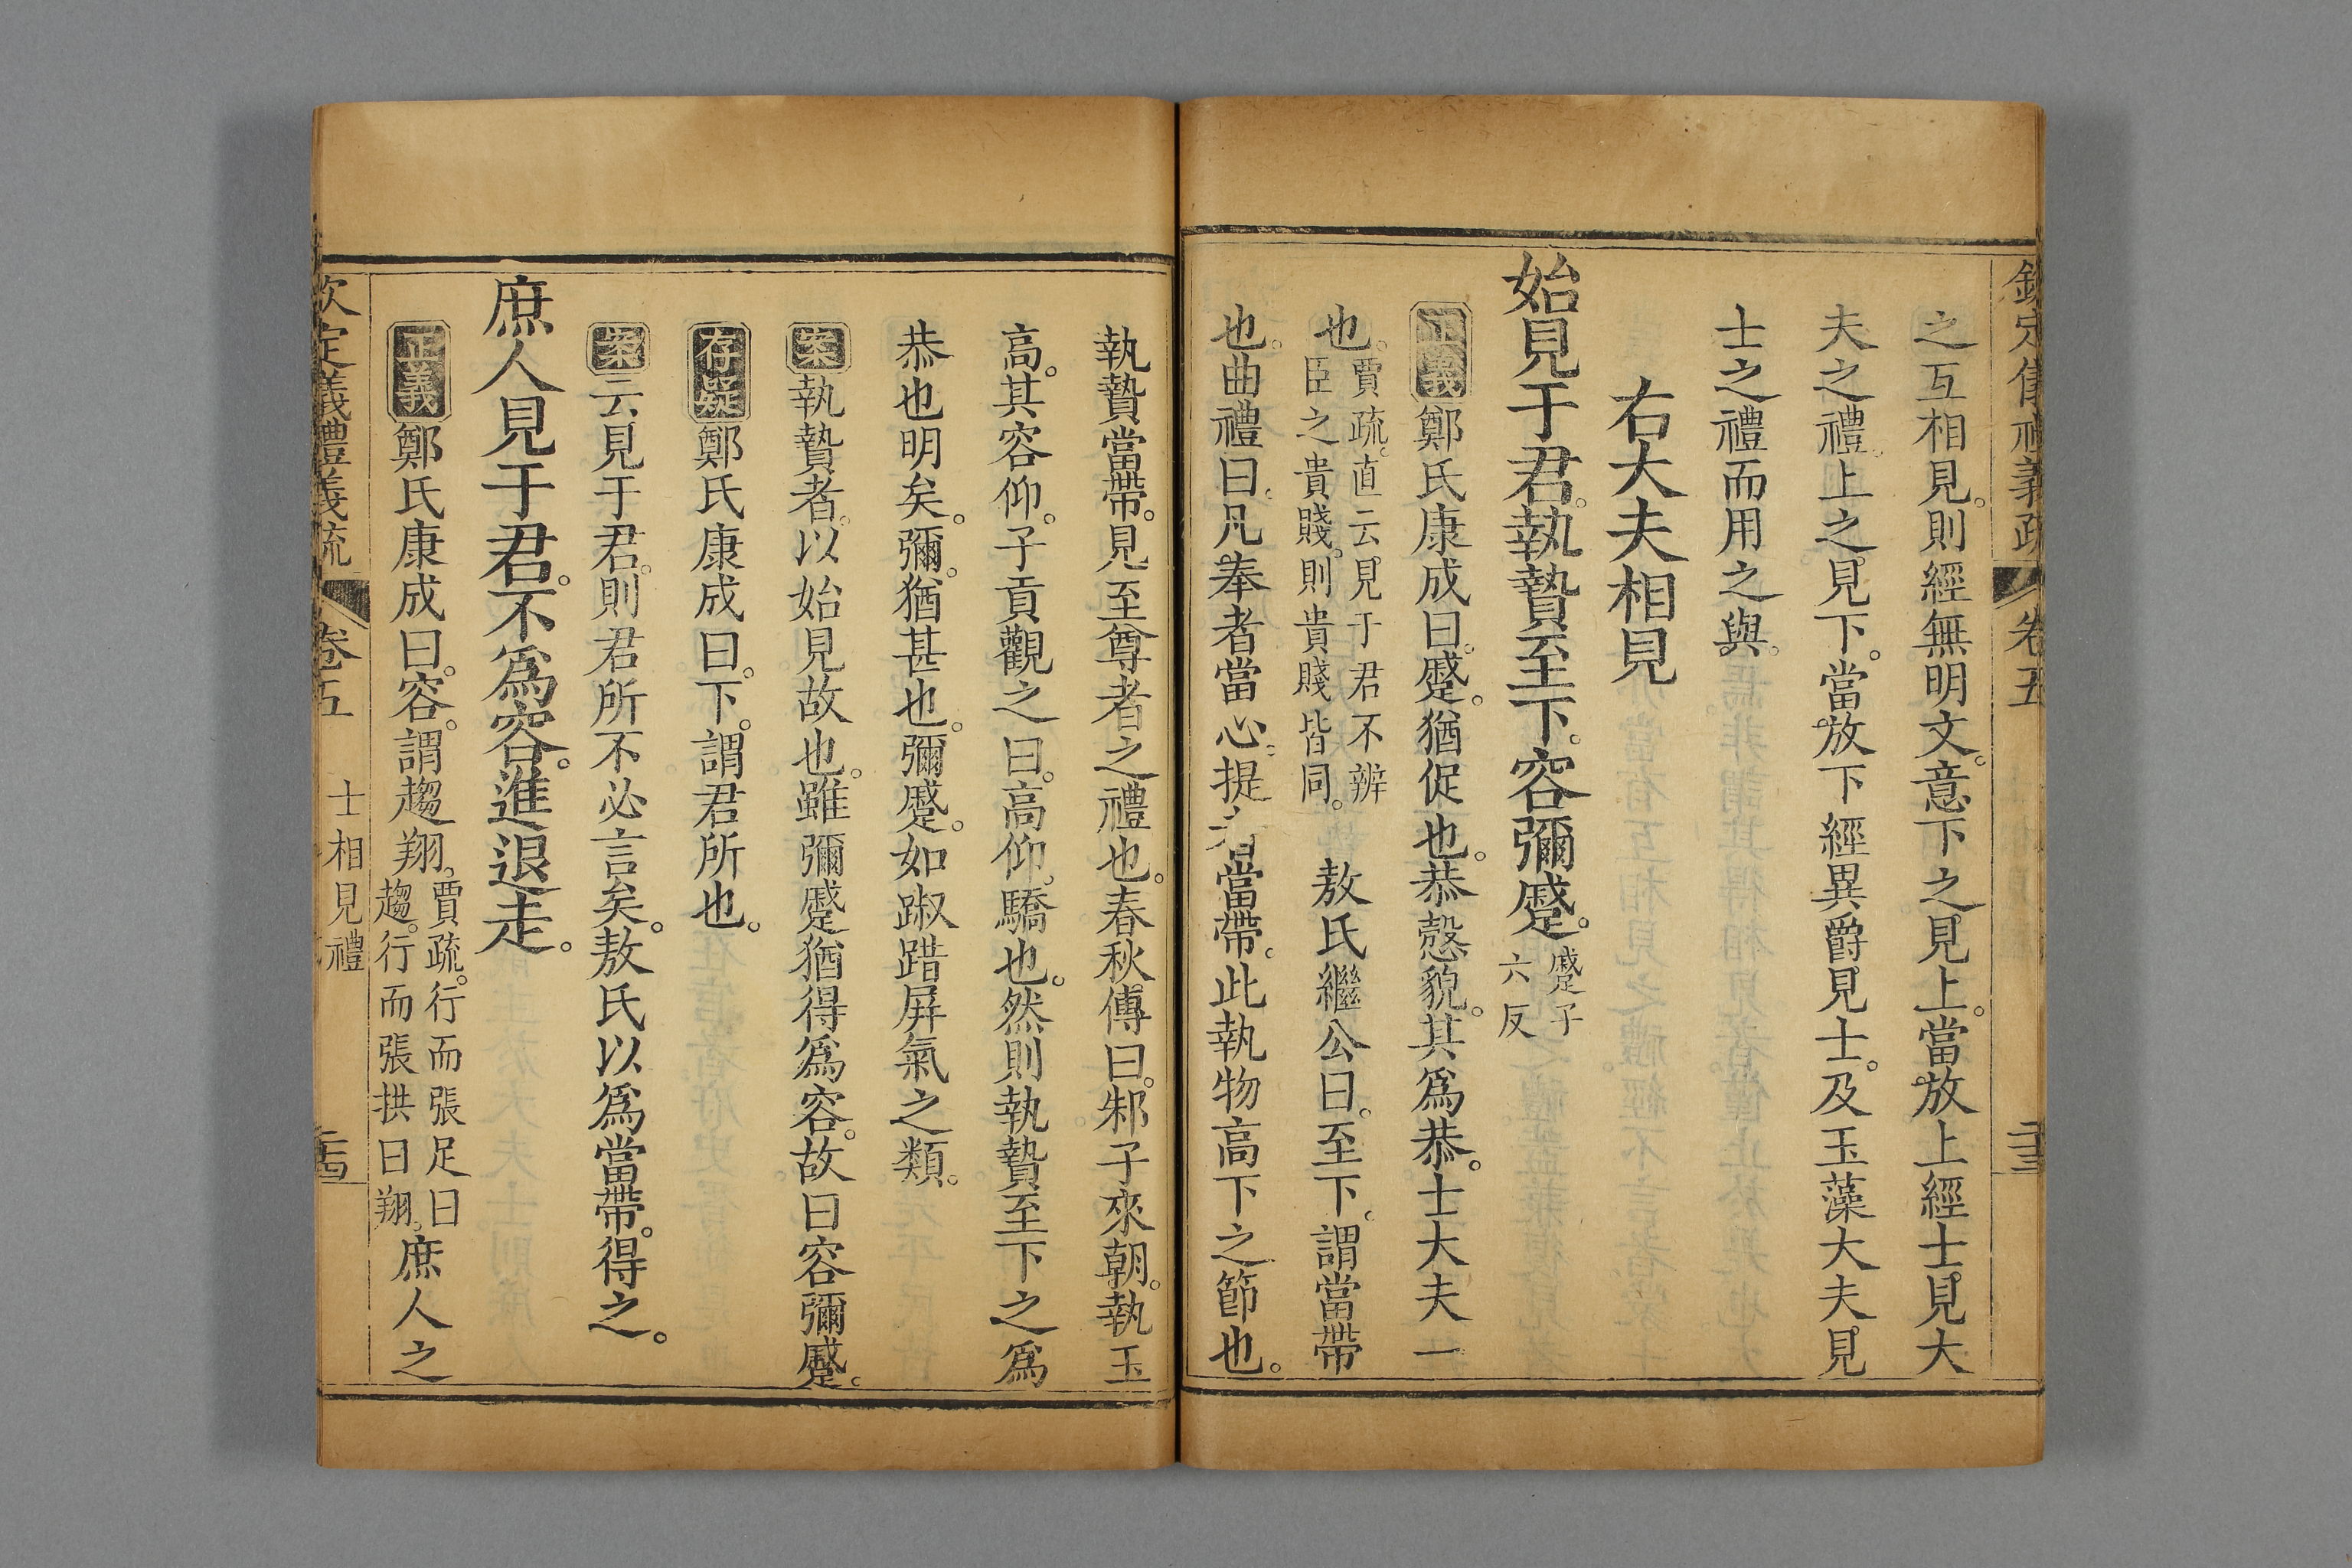 欽定儀禮義疏 卷五 二十三
之互相見。則經無明文。意下之見上。當放上經士見大
夫之禮。上之見下。當放下經異爵見士。及玉藻大夫見
士之禮而用之與。
右大夫相見
始見于君。執贄至下。容彌蹙。蹙子六反
正義鄭氏康成曰。蹙。猶促也。恭慤貌。其爲恭。士大夫一
也。賈疏。直云見于君不辨臣之貴賤。則貴賤皆同。 敖氏繼公曰。至下。謂當帶
也。曲禮曰。凡奉者當心。提者當帶。此執物高下之節也。
執贄當帶。見至尊者之禮也。春秋傳曰。邾子來朝。執玉
高。其容仰。子貢觀之曰。高仰。驕也。然則執贄至下之爲
恭也明矣。彌。猶甚也。彌蹙。如踧踖屏氣之類。
案執贄者。以始見故也。雖彌蹙猶得爲容。故曰容彌蹙。
存疑鄭氏康成曰。下。謂君所也。
案云見于君。則君所不必言矣。敖氏以爲當帶。得之。
庶人見于君。不爲容。進退走。
正義鄭氏康成曰。容。謂趨翔。賈疏。行而張足曰趨。行而張拱曰翔。庶人之
欽定儀禮義疏 卷五 士相見禮 二十四